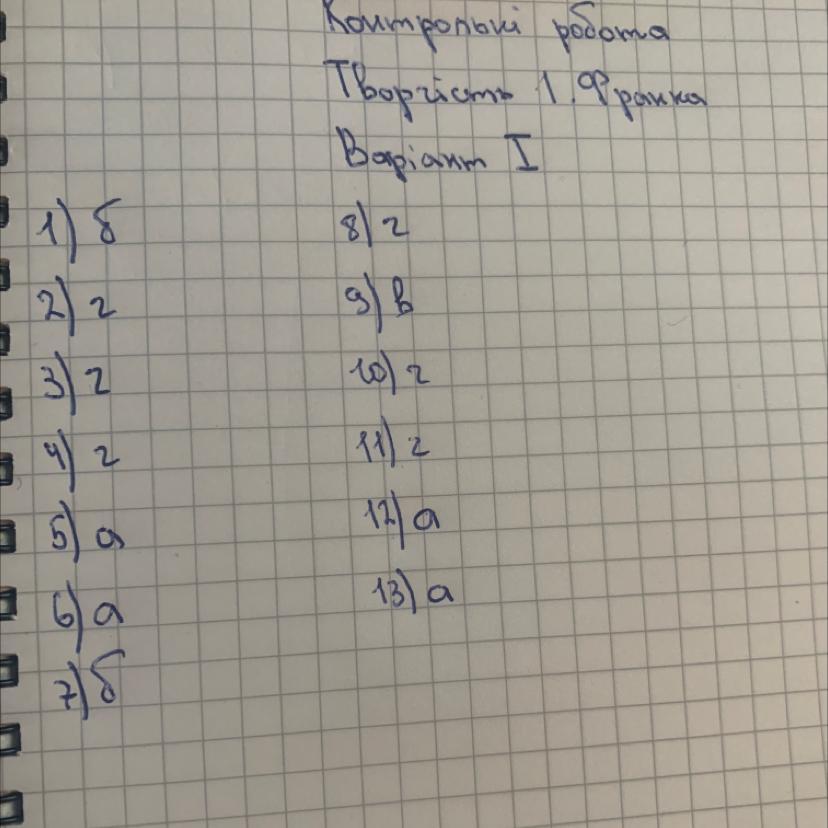 Контрольні робота
Творчість І. Франка
Варіант I
1) б
2) г
3) г
4) г
5) а
6) а
7) б
8) г
9) в
10) г
11) г
12) а
13) а